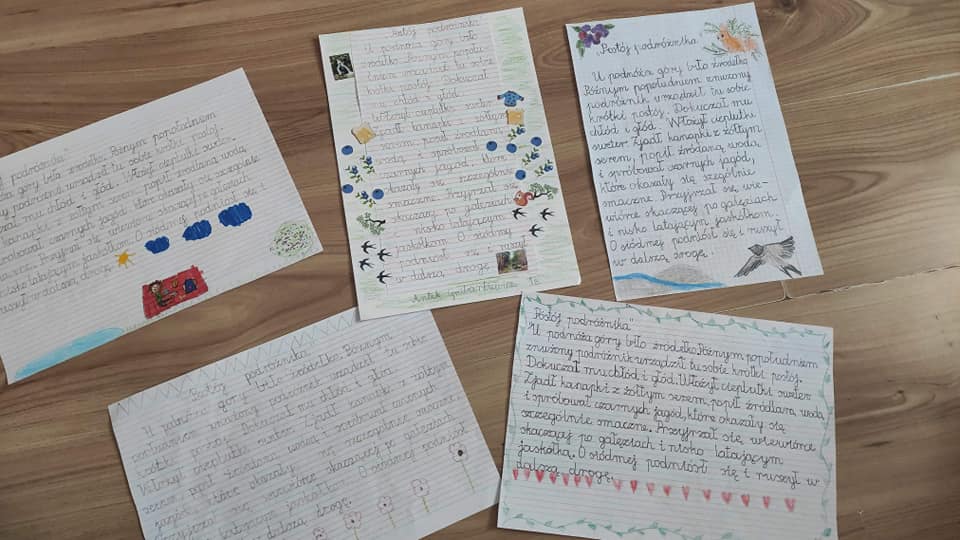 podróżnika"
góry było źródełko. Późnym popołudniem
podróżnik urządził tu sobie krótki postój.
mu chłód i głód. Włożył cieplutki sweter
kanapki z żółtym popił źródlaną wodą
czarnych jagód, które okazały szczególnie
smaczne. Przyjrzał się wiewiórce po gałęziach
nisko latającym jaskółkom. O siódmej podniósł się i
ruszył w dalszą drogę.
„Postój podróżnika"
U podnóża góry było
źródełko. Późnym popołu-
dniem urządził tu sobie
krótki postój. Dokuczał
mu chłód i głód.
Włożył cieplutki sweter
zjadł kanapki z żółtym
serem, popił źródlaną
wodą i spróbował
czarnych jagód, które
okazały się szczególnie
smaczne. Przyjrzał się
skaczącej po gałęziach
nisko latającym
jaskółkom. O siódmej
podniósł się i ruszył
w dalszą drogę
Antek
„Postój podróżnika
U podnóża góry było źródełko
Późnym popołudniem znużony
podróżnik urządził tu sobie
krótki postój. Dokuczał mu
chłód i głód. Włożył cieplutki
sweter Zjadł kanapki z żółtym
serem, popił źródlaną wodą
i spróbował czarnych jagód,
które okazały się szególnie
smaczne. Przyjrzał się, wie-
wiórce skaczącej po gałęziach
i nisko latającym jaskółkom.
O siódmej podniósł się i ruszył
w dalszą drogę.
Postój podróżnika"
U podnóża góry było źródełko. Późnym
popołudniem znużony podróżnik urządził tu sobie
krótki postój. Dokuczał mu chłód i głód.
Włożył cieplutki sweter. Zjadł kanapki z żółtym
serem, popił źródlaną wodą i spróbował czarnych
jagód, które okazały się szczególnie smaczne.
Przyjrzał się wiewiórce skaczącej po gałęziach,
i nisko latającym jaskółkom. O siódmej podniósł
w dalszą drogę.
„Postój podróżnika"
U podnóża góry było źródełko. Późnym popołudniem
znużony podróżnik urządził tu sobie krótki postój.
Dokuczał mu chłód i głód. Włożył cieplutki sweter
Zjadł kanapki z żółtym serem, popił źródlaną wodą
i spróbował czarnych jagód, które okazały się
szczególnie smaczne. Przyjrzał się, wiewiórce
skaczącej po gałęziach i nisko latającym
jaskółką. O siódmej podniósł się i ruszył w
dalszą drogę.